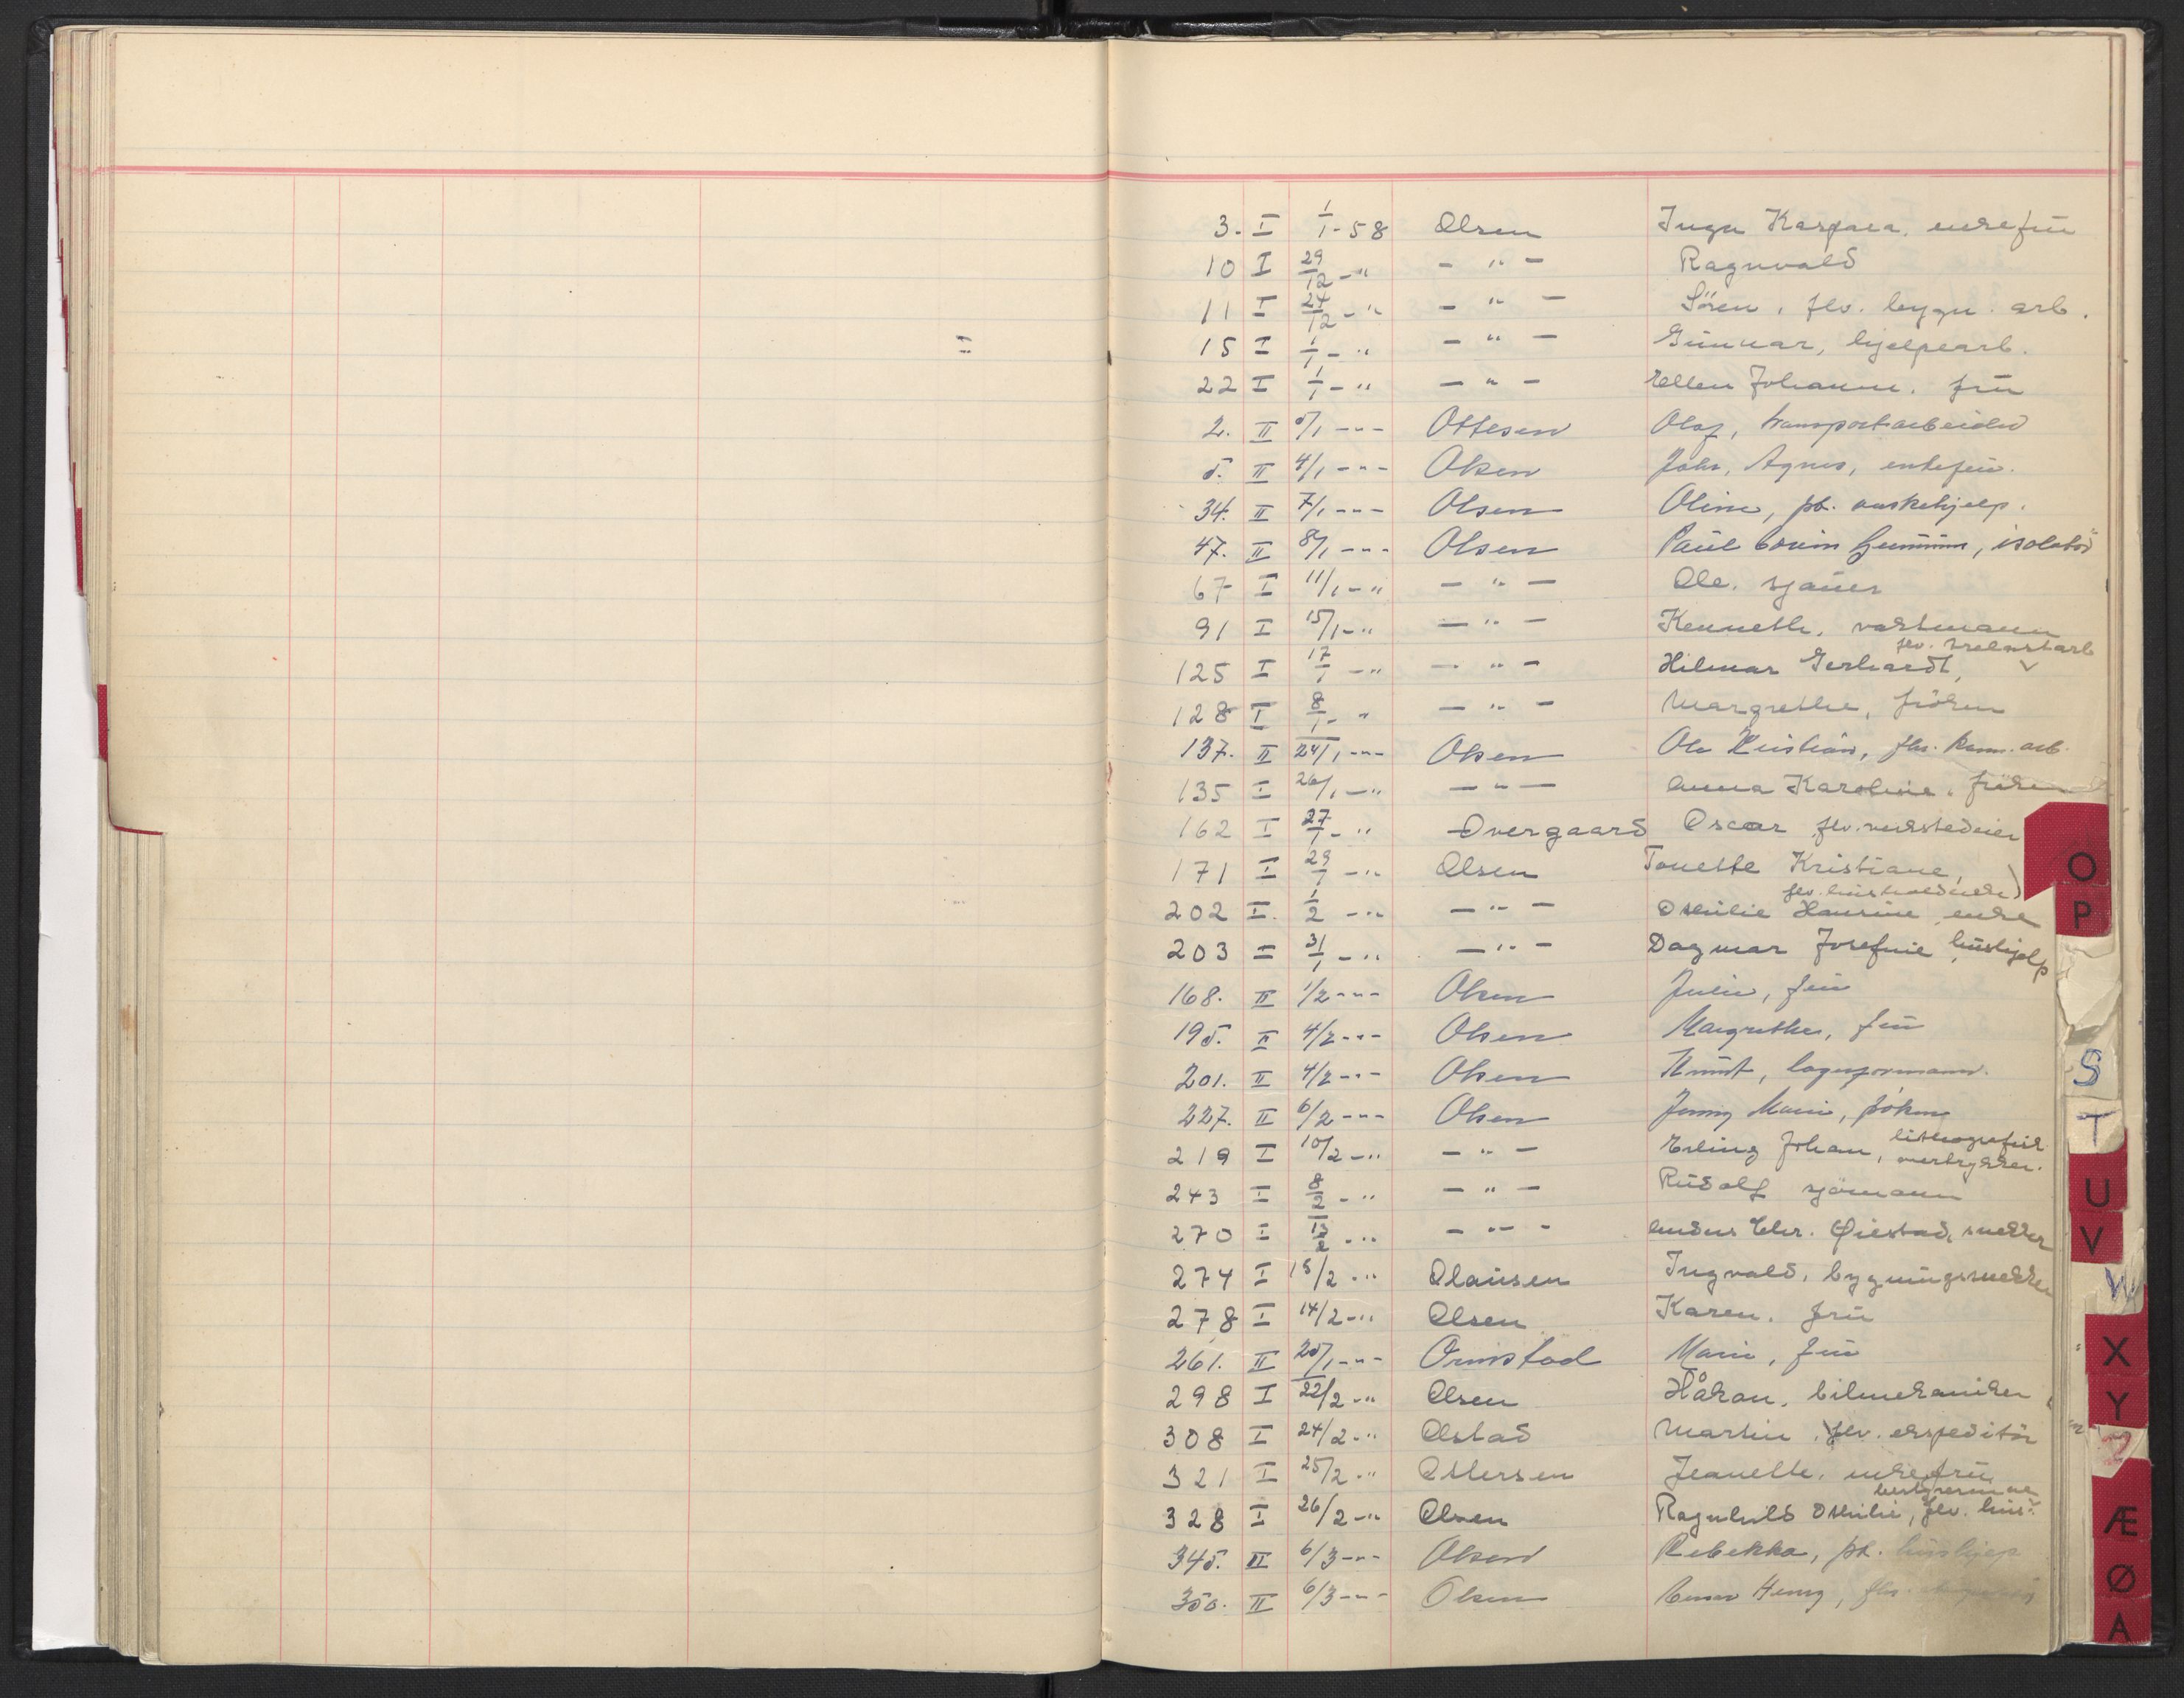 3. I 1/1-58 Olsen Inga Kaspara, enkefrü
10 I 29/12 -" - " - Ragnvald
11 I 24/12 -" - " - Sören, flv. bygn. arb.
15 I 1/1 -" - " - Günnar, hjelpearb.
22 I 1/1 -" - " - Ellen Johanne, frü
2. II 5/1 -"- Ottesen Olaf, transportarbeider
5. II 4/1 -"- Olsen Johs, Agnes, enkefrü.
34. II 7/1 -"- Olsen Oline, pb. vaskehjelp.
47. II 8/1 -"- Olsen Paül, isolatör
67 I 11/1 -" - " - Ole, sjaüer
91 I 15/1 -" - " - Kenneth, vaktmann
125 I 17/1 -" - " - Hilmar Gerhardt, flv. trelastarb
128 I 8/1 -" - " - Margrethe, fröken
137. II 24/1 -"- Olsen Ole Kristian, flv. komm. arb.
135 I 26/1 -" - " - Anna Karoline, fröken
162 I 27/1 -" Overgaard Oscar flv. verkstedeier
171 I 29/1 -" Olsen Tonette Kristiane,
flv. hüsholderske)
202 I. 1/2 -" - " - Othilie Hansine enke
203 I 31/1 -" - " - Dagmar Josefine, hüshjelp
168. II 1/2 -"- Olsen Julie, frü
195. II 4/2 -"- Olsen Margrethe, frü
201. II 4/2 -"- Olsen Knüt, lagerformann.
227. II 6/2 -"- Olsen Jenny Marie, fröken
219 I 10/2 -" - " - Erling Johan, lithografisk
overtrykker.
243 I 8/2 -" - " - Rüdolf sjömann
270 I 13/2 -" - " - Anders Chr. Øiestad, snekker
274 I 15/2 -" Olaüsen Ingvald, bygningssnekker
278 I 14/2 -" Olsen Karen, frü
261. II 20/1 -"- Ormstad Marie, frü
298 I 22/2 -" Olsen Håkon, bilmekaniker
308 I 24/2 -" Olstad Martin, flv. ekspeditör
321 I 25/2 -" Ottersen Jeanette, enkefrü
328 I 26/2 -" Olsen Ragnhild Othilie, flv. hüs-
bestyrerinne
345. II 6/3 -"- Olsen Rebekka, pb. hüshjelp
350. II 6/3 -"- Olsen Henry, flv.
O
P
S
T
U
V
W
X
Y
Z
Æ
Ø
A